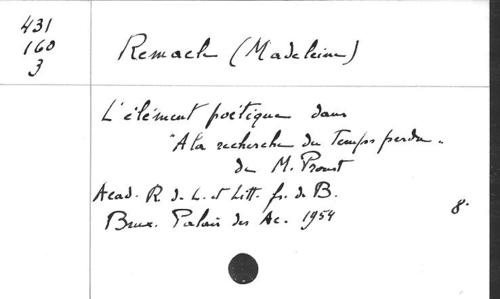 431
160
3
Remacle (Madeleine)
L'élément poétique dans
"A la recherche du Temps perdu"
de M. Proust
Acad. R. de L. et Litt. fr. de B.
Brux. Palais des Ac. 1954
8.